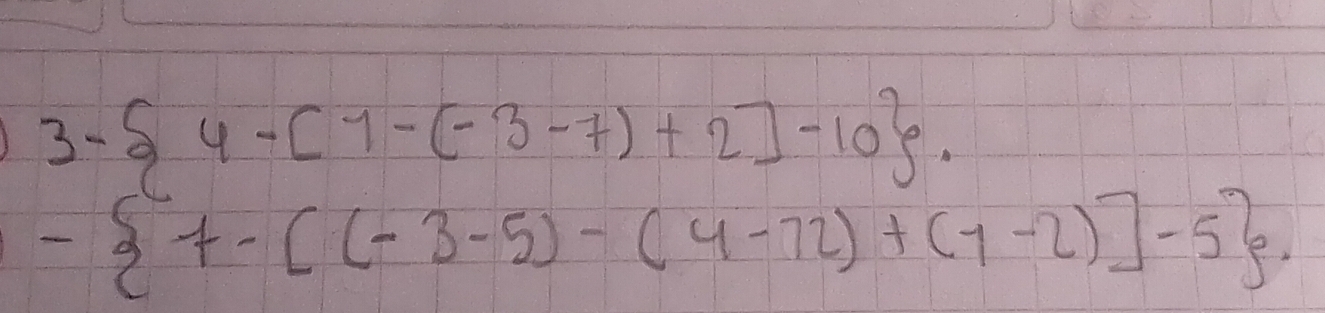 3-{ 4-[1-(-3-7)+2]-10}.
-{ 7-[(-3-5)-(4-12)+(1-2)]-5}.